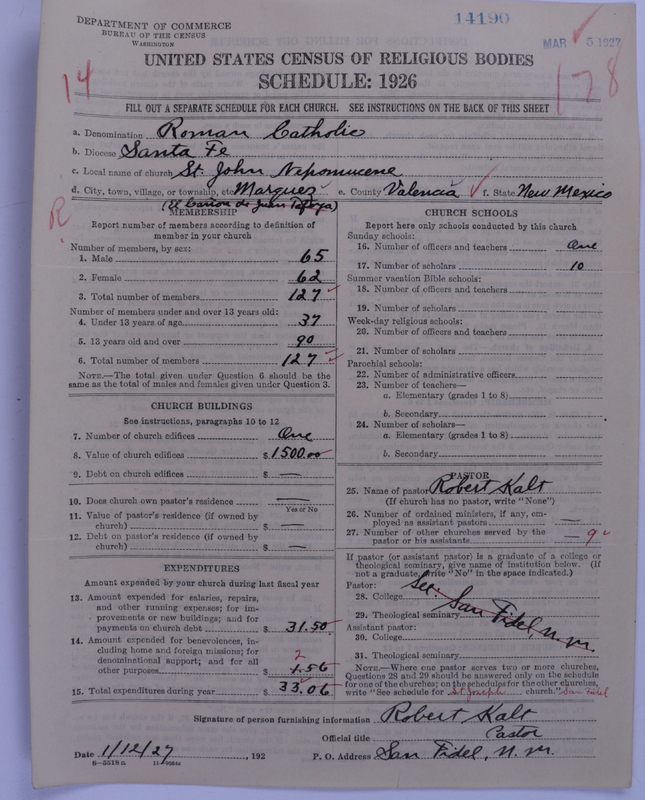 DEPARTMENT OF COMMERCE
BUREAU OF THE CENSUS
WASHINGTON
14190
MAR 5 1927
UNITED STATES CENSUS OF RELIGIOUS BODIES
SCHEDULE: 1926
14
178
FILL OUT A SEPARATE SCHEDULE FOR EACH CHURCH. SEE INSTRUCTIONS ON THE BACK OF THIS SHEET
a. Denomination Roman Catholic
b. Diocese Santa Fe
c. Local name of church St. John Nepomucene
d. City, town, village, or township, etc Marquez e. County Valencia f. State New Mexico
(El Cañon de Juan Tafoya)
R
MEMBERSHIP
Report number of members according to definition of
member in your church
Number of members, by sex:
1. Male 65
2. Female 62
3. Total number of members 127
Number of members under and over 13 years old:
4. Under 13 years of age 37
5. 13 years old and over 90
6. Total number of members 127
NOTE.—The total given under Question 6 should be the
same as the total of males and females given under Question 3.
CHURCH BUILDINGS
See instructions, paragraphs 10 to 12
7. Number of church edifices One
8. Value of church edifices $ 1500.00
9. Debt on church edifices $ —
10. Does church own pastor's residence —
Yes or No
11. Value of pastor's residence (if owned by
church) $ —
12. Debt on pastor's residence (if owned by
church) $ —
EXPENDITURES
Amount expended by your church during last fiscal year
13. Amount expended for salaries, repairs,
and other running expenses; for im-
provements or new buildings; and for
payments on church debt $ 31.50
14. Amount expended for benevolences, in-
cluding home and foreign missions; for
denominational support; and for all
other purposes 2 1.56
15. Total expenditures during year $ 33.06
CHURCH SCHOOLS
Report here only schools conducted by this church
Sunday schools:
16. Number of officers and teachers One
17. Number of scholars 10
Summer vacation Bible schools:
18. Number of officers and teachers
19. Number of scholars
Week-day religious schools:
20. Number of officers and teachers
21. Number of scholars
Parochial schools:
22. Number of administrative officers
23. Number of teachers—
a. Elementary (grades 1 to 8)
b. Secondary
24. Number of scholars—
a. Elementary (grades 1 to 8)
b. Secondary
PASTOR
25. Name of pastor Robert Kalt
(If church has no pastor, write "None")
26. Number of ordained ministers, if any, em-
ployed as assistant pastors —
27. Number of other churches served by the
pastor or his assistants — 9
If pastor (or assistant pastor) is a graduate of a college or
theological seminary, give name of institution below. (If
not a graduate, write "No" in the space indicated.)
Pastor:
28. College See:
29. Theological seminary San Fidel, N.M.
Assistant pastor:
30. College
31. Theological seminary
NOTE.—Where one pastor serves two or more churches,
Questions 28 and 29 should be answered only on the schedule
for one of the churches; on the schedules for the other churches,
write "See schedule for St. Joseph church." San Fidel
Signature of person furnishing information Robert Kalt
Official title Pastor
Date 1/12/27, 192 P. O. Address San Fidel, N. M.